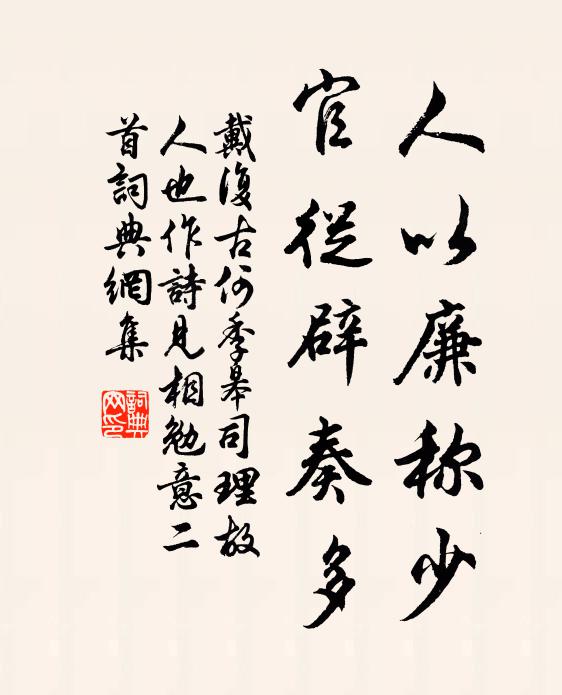 人以廉称少
官从辟奏多
戴復古何季皋司理故
人也作詩見相勉意二
首詞典網集
詞典网